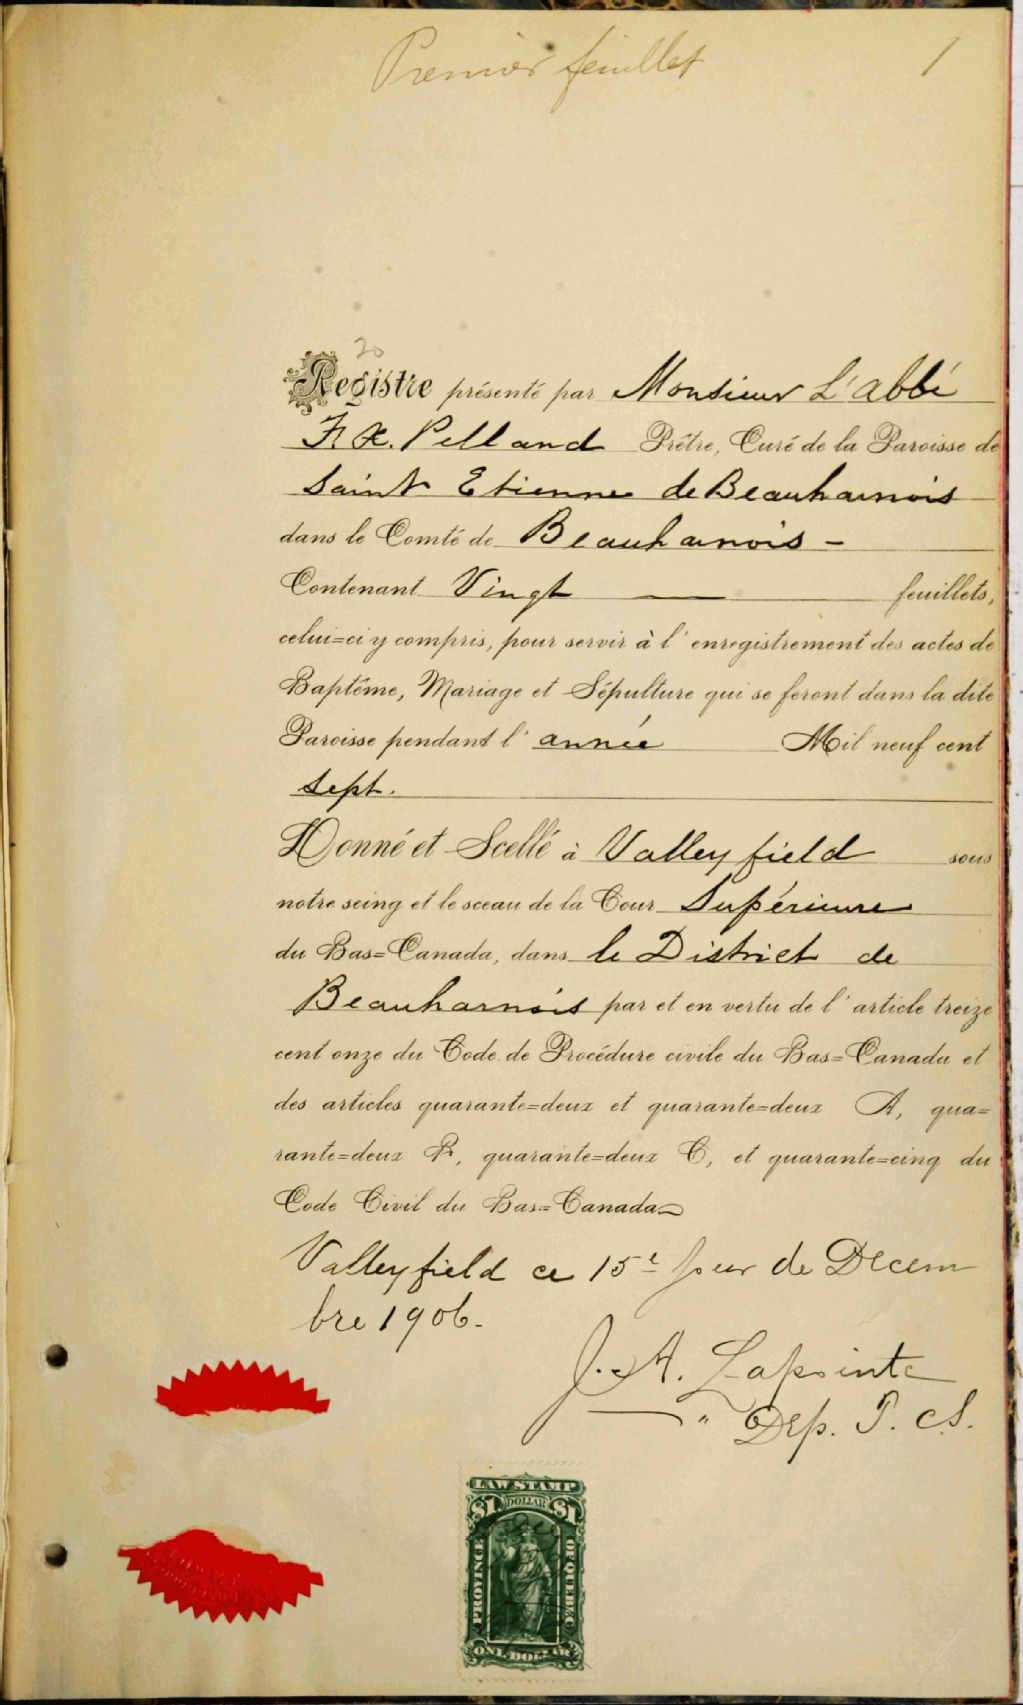 Premier feuillet 1
20
Registre présenté par Monsieur L'abbé
F. X. Pelland Prêtre, Curé de la Paroisse de
Saint Etienne de Beauharnois
dans le Comté de Beauharnois -
Contenant Vingt feuillets,
celui=ci y compris, pour servir à l'enregistrement des actes de
Baptême, Mariage et Sépulture qui se feront dans la dite
Paroisse pendant l'année Mil neuf cent
sept.
Donné et Scellé à Valleyfield sous
notre seing et le sceau de la Cour Supérieure
du Bas=Canada, dans le District de
Beauharnois par et en vertu de l'article treize
cent onze du Code de Procédure civile du Bas=Canada et
des articles quarante=deux et quarante=deux A, qua=
rante=deux B, quarante=deux C, et quarante=cinq du
Code Civil du Bas=Canada
Valleyfield ce 15e jour de Décem
bre 1906.
J. A. Lapointe
" Dép. P. C. S.
LAW STAMP
$1 DOLLAR $1
PROVINCE OF QUEBEC
ONE DOLLAR